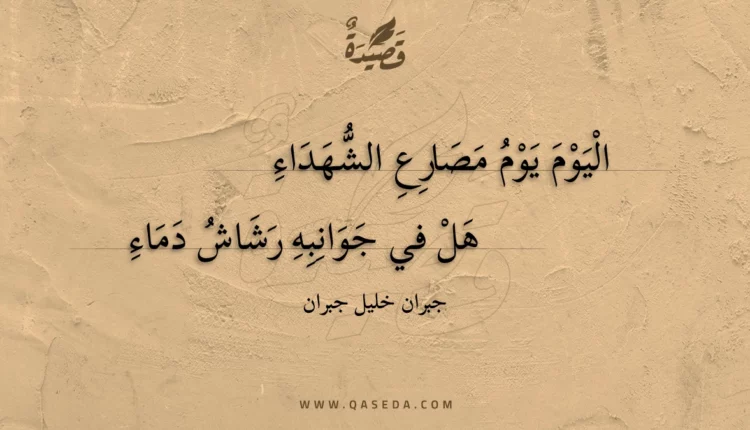 قَصِيدَةٌ
الْيَوْمَ يَوْمُ مَصَارِعِ الشُّهَدَاءِ
هَلْ في جَوَانِبِهِ رَشَاشُ دَمَاءِ
جبران خليل جبران
WWW.QASEDA.COM